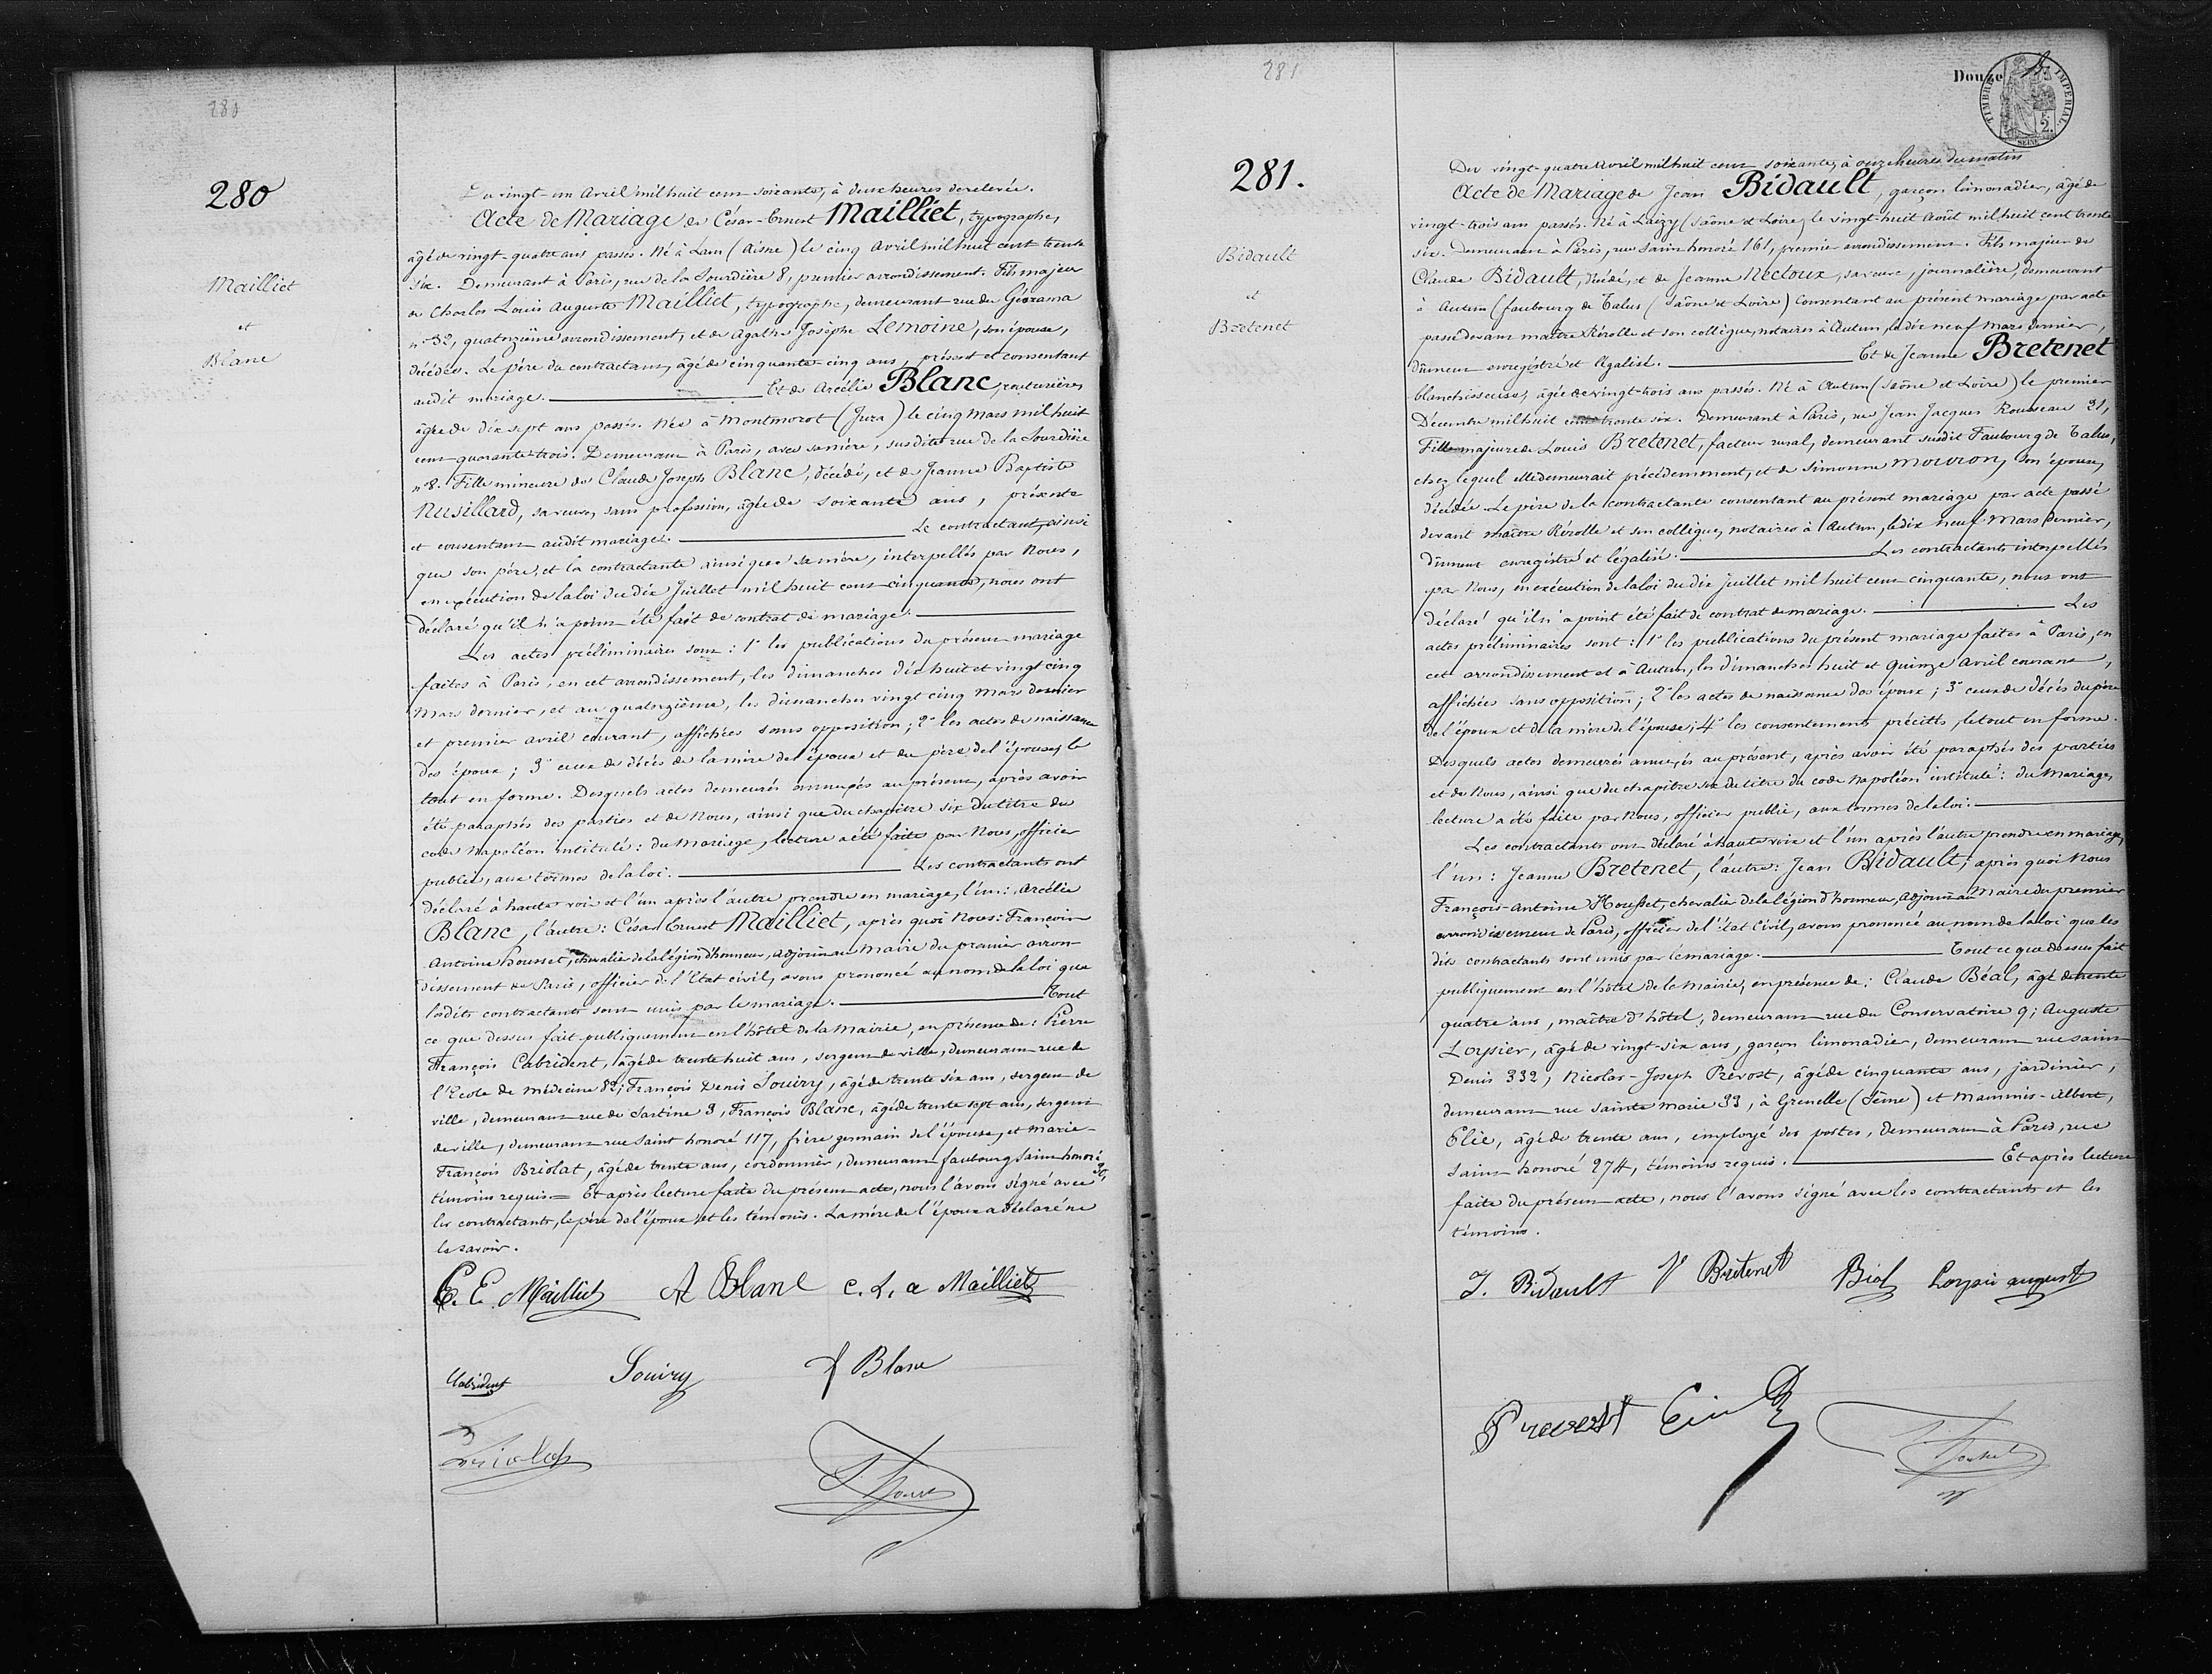 280
280
Mailliet
et
Blanc
Du vingt-un Avril mil huit cent soixante, à deux heures de relevée.
Acte de Mariage de César-Ernest Mailliet, typographe,
âgé de vingt-quatre ans passés. Né à Laon (Aisne) le cinq Avril mil huit cent trente
six. Demeurant à Paris, rue de la Sourdière 8, premier arrondissement. Fils majeur
de Charles Louis Auguste Mailliet, typographe, demeurant rue du Géorama
n° 32, quatorzième arrondissement, et de Agathe Josèphe Lemoine, son épouse,
décédée. Le père du contractant, âgé de cinquante-cinq ans, présent et consentant
audit mariage. Et de Arcélie Blanc, couturière,
âgée de dix sept ans passés. Née à Montmorot (Jura) le cinq Mars mil huit
cent quarante-trois. Demeurant à Paris, avec sa mère, susdite rue de la Sourdière
n° 8. Fille mineure de Claude Joseph Blanc, décédé, et de Jeanne Baptiste
Nusillard, sa veuve, sans profession, âgée de soixante ans, présente
et consentant audit mariage. Le contractant, ainsi
que son père, et la contractante ainsi que sa mère, interpellés par Nous,
en exécution de la loi du dix Juillet mil huit cent cinquante, nous ont
déclaré qu'il n'a point été fait de contrat de mariage.
Les actes préliminaires sont : 1° les publications du présent mariage
faites à Paris, en cet arrondissement, les dimanches dix huit et vingt cinq
Mars dernier, et au quatorzième, les dimanches vingt cinq Mars dernier
et premier avril courant, affichées sans opposition ; 2° les actes de naissance
des époux ; 3° ceux de décès de la mère de l'époux et du père de l'épouse, le
tout en forme. Desquels actes demeurés annexés au présent, après avoir
été paraphés des parties et de Nous, ainsi que du chapitre six du titre du
code Napoléon intitulé : du Mariage, lecture a été faite par Nous, officier
public, aux termes de la loi. Les contractants ont
déclaré à haute voix et l'un après l'autre prendre en mariage, l'un : Arcélie
Blanc, l'autre : César Ernest Mailliet, après quoi Nous : François
Antoine Housset, chevalier de la légion d'honneur, adjoint au Maire du premier arron-
dissement de Paris, officier de l'Etat civil, avons prononcé au nom de la loi que
lesdits contractants sont unis par le mariage. Tout
ce que dessus fait publiquement en l'hôtel de la Mairie, en présence de : Pierre
François Cabrident, âgé de trente huit ans, sergent de ville, demeurant rue de
l'Ecole de médecine 82 ; François Denis Souiry, âgé de trente six ans, sergent de
ville, demeurant rue de Sartine 3, François Blanc, âgé de trente sept ans, sergent
de ville, demeurant rue Saint honoré 117, frère germain de l'épouse, et Marie-
François Briolat, âgé de trente ans, cordonnier, demeurant faubourg Saint honoré
témoins requis. Et après lecture faite du présent acte, nous l'avons signé avec
les contractants, le père de l'époux et les témoins. La mère de l'épouse a déclaré ne
le savoir.
C. E. Mailliet A Blanc C. L. A Mailliet
Cabrident Souiry f Blanc
Briolat
281
281.
Bidault
et
Bretenet
Douze
TIMBRE IMPERIAL
2.
SEINE
Du vingt-quatre Avril mil huit cent soixante, à onze heures du matin
Acte de Mariage de Jean Bidault, garçon limonadier, âgé de
vingt-trois ans passés. Né à Laizy (Saône et Loire) le vingt-huit Août mil huit cent trente
six. Demeurant à Paris, rue Saint honoré 161, premier arrondissement. Fils majeur de
Claude Bidault, décédé, et de Jeanne Nectoux, sa veuve, journalière, demeurant
à Autun (faubourg de Talus (Saône et Loire) consentant au présent mariage par acte
passé devant maître Rérolle et son collègue, notaires à Autun, le dix neuf Mars dernier,
dûment enregistré et légalisé. Et de Jeanne Bretenet
blanchisseuse, âgée de vingt-trois ans passés. Né à Autun (Saône et Loire) le premier
Décembre mil huit cent trente six. Demeurant à Paris, rue Jean Jacques Rousseau 21,
Fille majeure de Louis Bretenet, facteur rural, demeurant susdit Faubourg de Talus,
chez lequel elle demeurait précédemment, et de Simonne Mouron, son épouse,
décédée. Le père de la contractante consentant au présent mariage par acte passé
devant maître Rérolle et son collègue, notaires à Autun, le dix neuf Mars dernier,
dûment enregistré et légalisé. Les contractants interpellés
par Nous, en exécution de la loi du dix Juillet mil huit cent cinquante, nous ont
déclaré qu'il n'a point été fait de contrat de mariage. Les
actes préliminaires sont : 1° les publications du présent mariage faites à Paris, en
cet arrondissement et à Autun, les dimanches huit et quinze avril courant,
affichées sans opposition ; 2° les actes de naissance des époux ; 3° ceux de décès du père
de l'époux et de la mère de l'épouse ; 4° les consentements précités, le tout en forme.
Desquels actes demeurés annexés au présent, après avoir été paraphés des parties
et de Nous, ainsi que du chapitre six du titre du code Napoléon intitulé : du Mariage,
lecture a été faite par Nous, officier public, aux termes de la loi.
Les contractants ont déclaré à haute voix et l'un après l'autre prendre en mariage,
l'un : Jeanne Bretenet, l'autre : Jean Bidault ; après quoi Nous
François-Antoine Housset, chevalier de la légion d'honneur, adjoint au Maire du premier
arrondissement de Paris, officier de l'état civil, avons prononcé au nom de la loi que les
dits contractants sont unis par le mariage. Tout ce que dessus fait
publiquement en l'hôtel de la Mairie, en présence de : Claude Béal, âgé de trente
quatre ans, maître d'hôtel, demeurant rue du Conservatoire 9 ; Auguste
Loysier, âgé de vingt-six ans, garçon limonadier, demeurant rue saint
Denis 332, Nicolas-Joseph Prévost, âgé de cinquante ans, jardinier,
demeurant rue Sainte Marie 33, à Grenelle (Seine) et Mammis-Albert,
Elie, âgé de trente ans, employé des postes, demeurant à Paris, rue
saint honoré 274, témoins requis. Et après lecture
faite du présent acte, nous l'avons signé avec les contractants et les
témoins.
J. Bidault Bretenet
Prevost